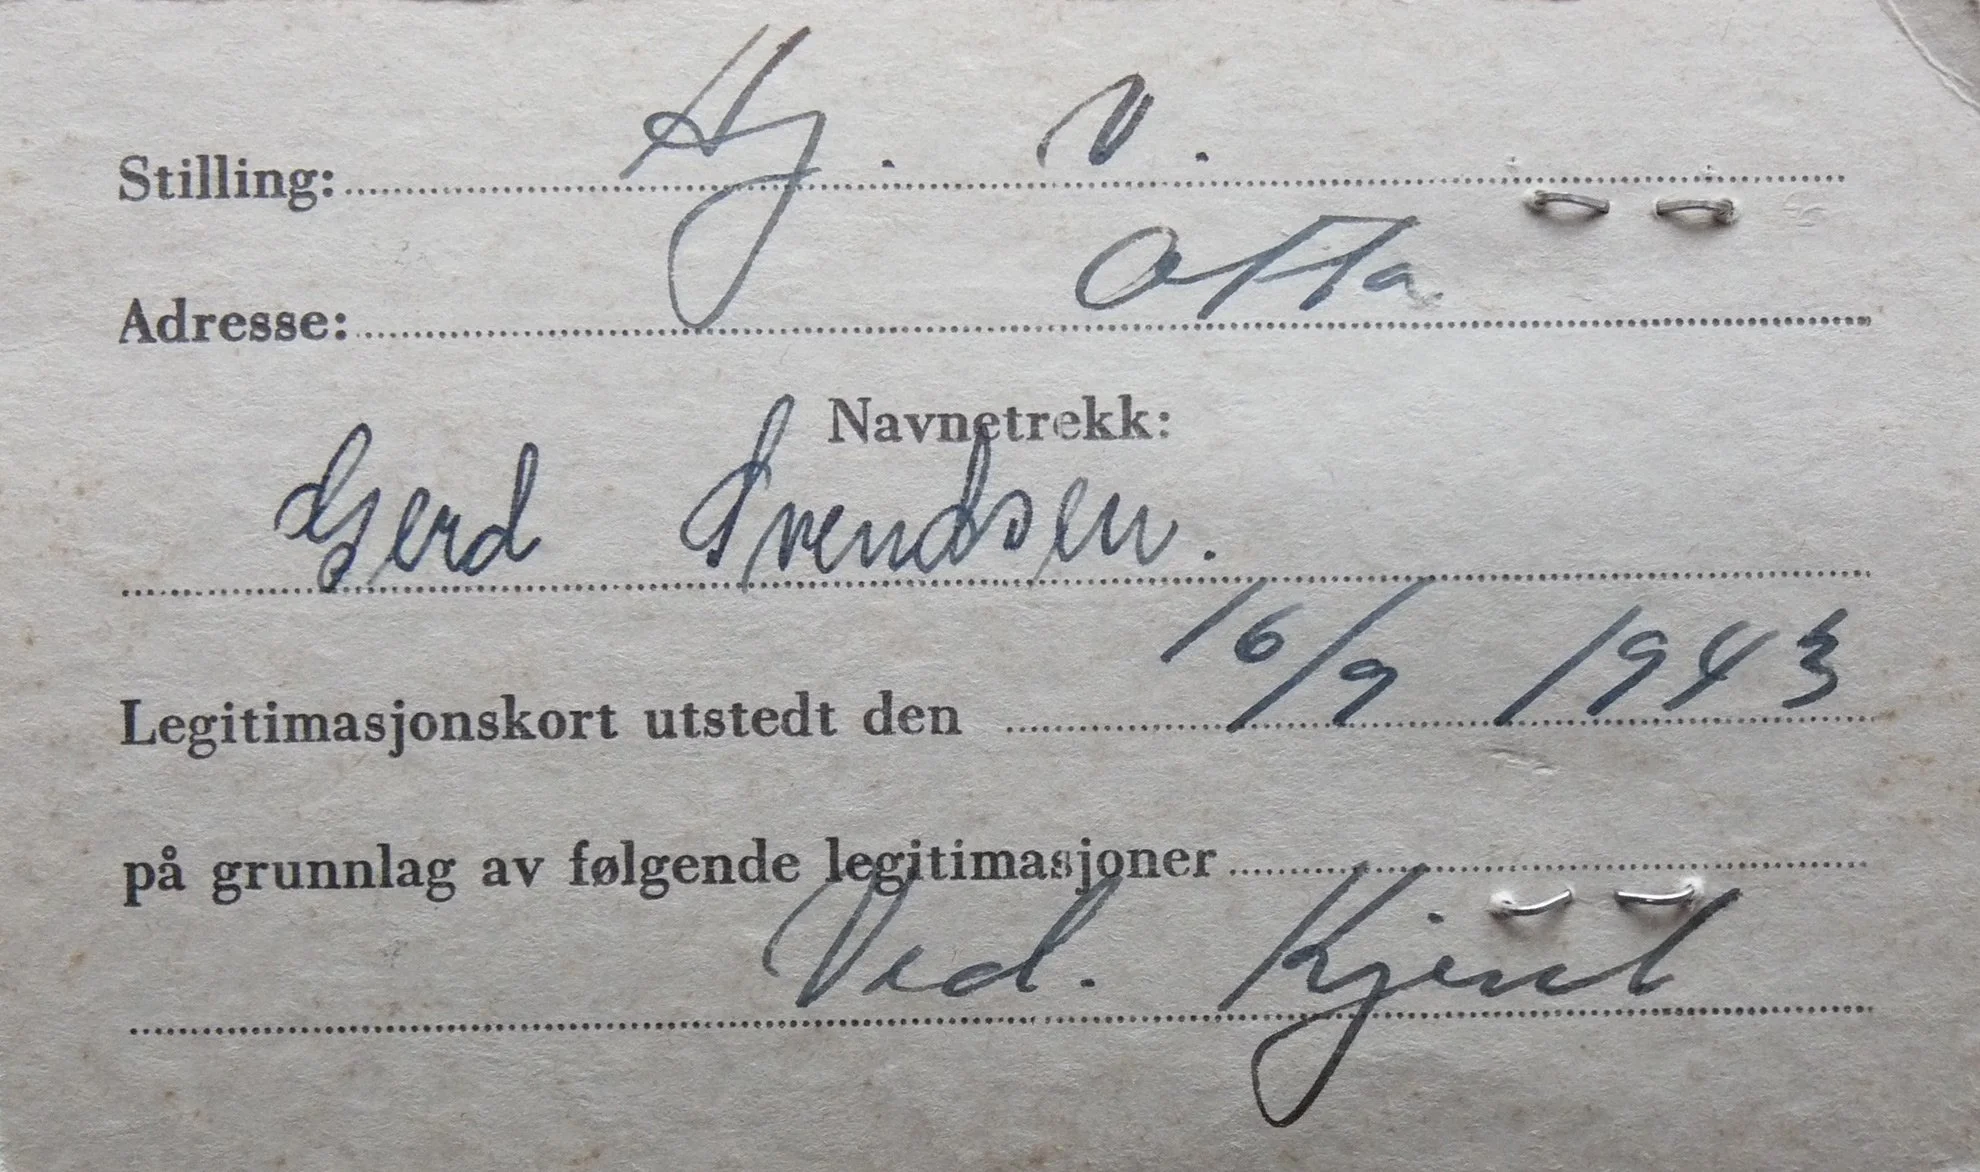 Stilling: Hj. V.
Adresse: Otta
Navnetrekk:
Gerd Svendsen.
Legitimasjonskort utstedt den 16/9 1943
på grunnlag av følgende legitimasjoner
Ved. Kjent